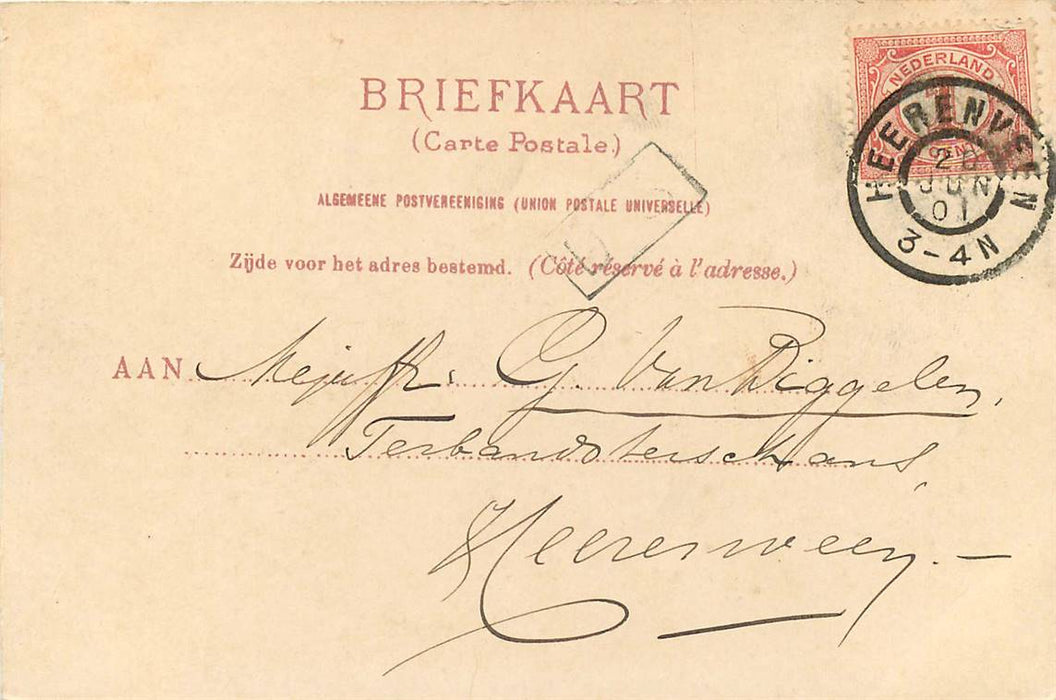 BRIEFKAART
(Carte Postale.)
ALGEMEENE POSTVEREENIGING (UNION POSTALE UNIVERSELLE)
Zijde voor het adres bestemd. (Côté réservé à l'adresse.)
NEDERLAND
1
CENT
HEERENVEEN
20
JUN
01
3-4N
AAN Mejuffr: G. van Diggelen,
Terbandsterschans,
Heerenveen.—